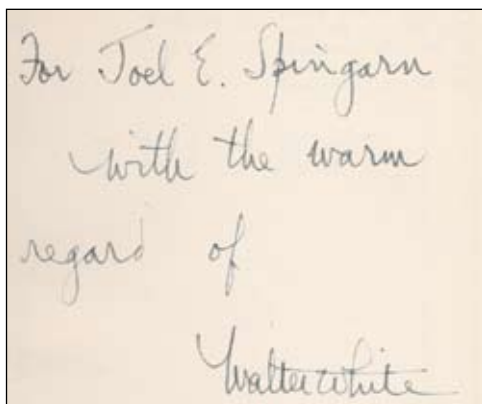 For Joel E. Spingarn
with the warm
regard of
Walter White